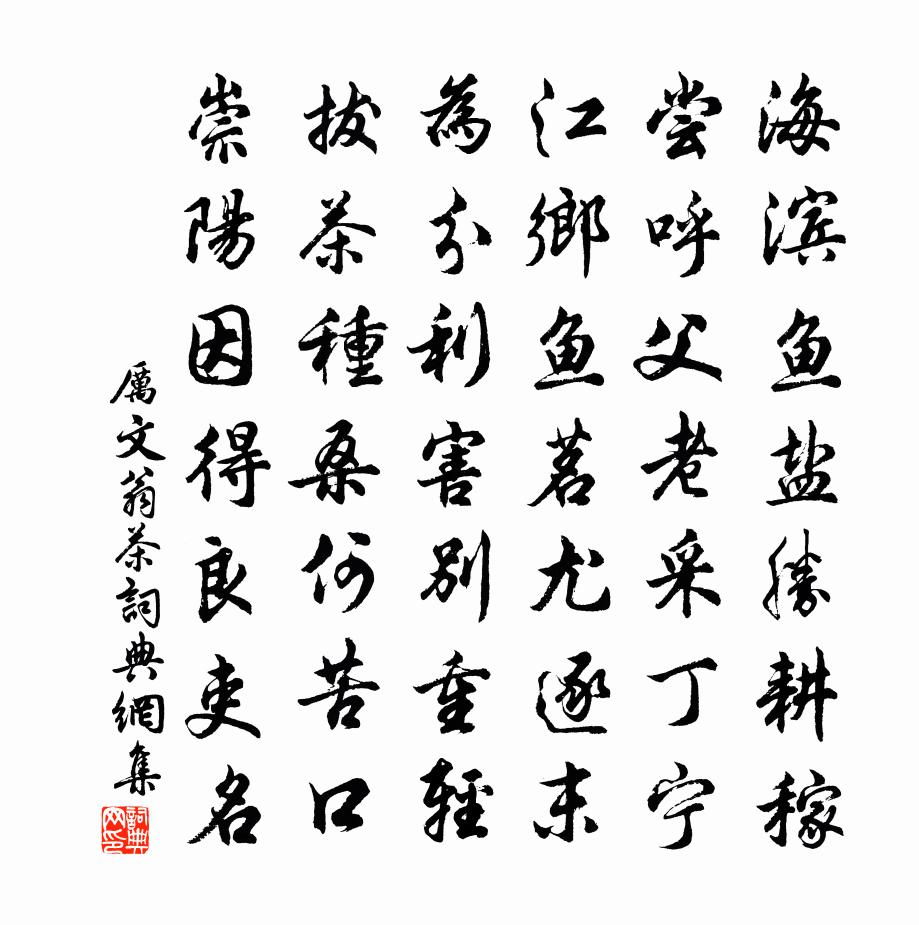 海滨鱼盐勝耕稼
尝呼父老采丁宁
江鄉鱼茗尤逐末
為分利害别重輕
拔茶種桑何苦口
崇陽因得良吏名
厲文翁茶詞典網集
詞典网印